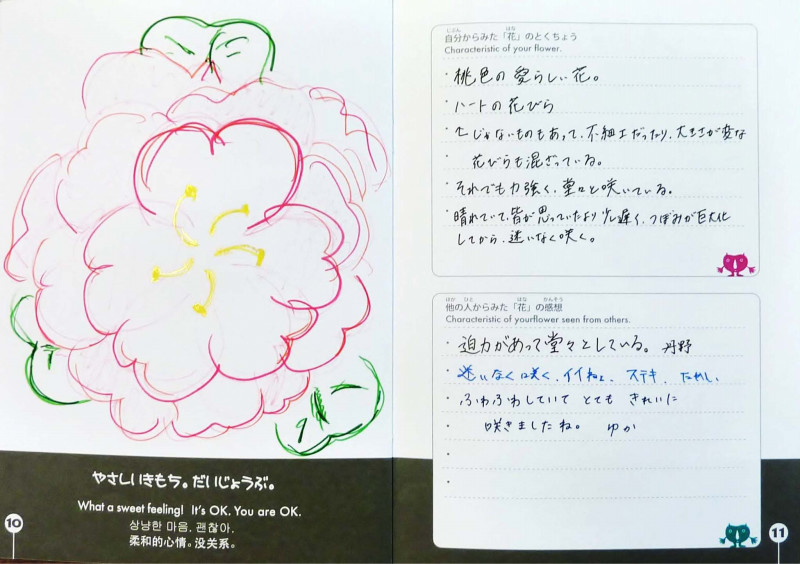 やさしいきもち。だいじょうぶ。
What a sweet feeling! It's OK. You are OK.
상냥한 마음. 괜찮아.
柔和的心情。没关系。
10
じぶん はな
自分からみた「花」のとくちょう
Characteristic of your flower.
・桃色の愛らしい花。
・ハートの花びら
・←じゃないものもあって、不細工だったり、大きさが変な
花びらも混ざっている。
・それでも力強く、堂々と咲いている。
・晴れていて、皆が思っていたより少し遅く、つぼみが巨大化
してから、迷いなく咲く。
ほか ひと はな かんそう
他の人からみた「花」の感想
Characteristic of yourflower seen from others.
・迫力があって堂々としている。 丹野
・迷いなく咲く、イイねぇ、ステキ。
・ふわふわしていて とても きれいに
・咲きましたね。 ゆか
11